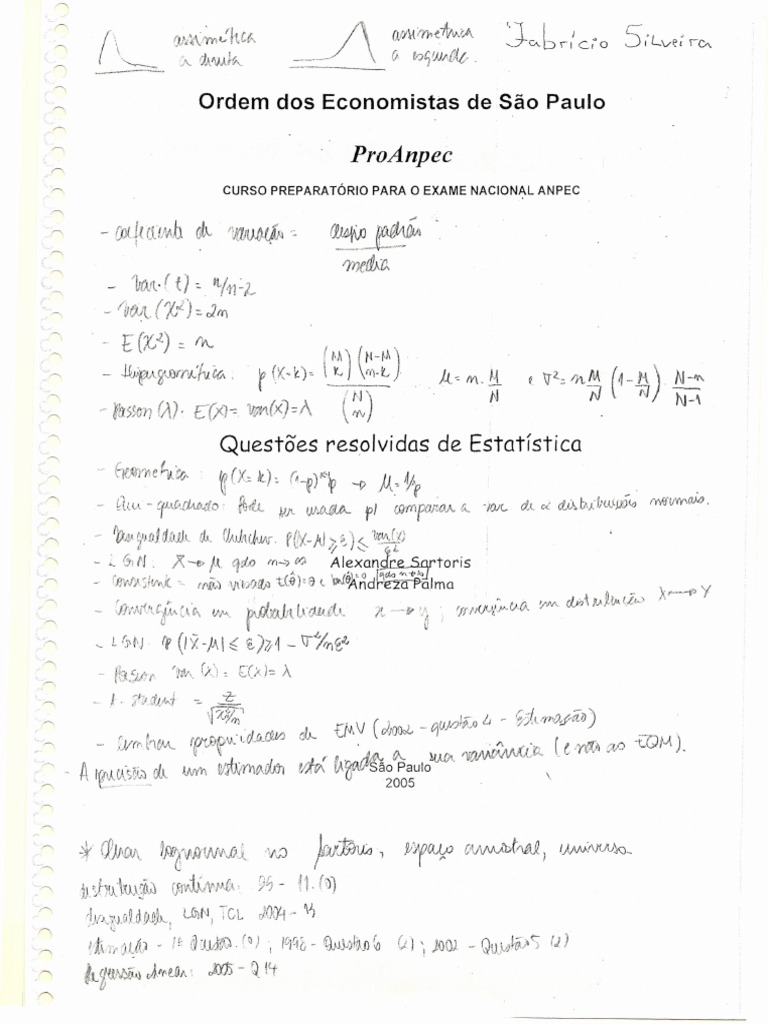 assimétrica
a direita
assimetrica
a esquerda.
Fabrício Silveira
Ordem dos Economistas de São Paulo
ProAnpec
CURSO PREPARATÓRIO PARA O EXAME NACIONAL ANPEC
- coeficiente de variação = desvio padrão / media
- Var.(t) = n/n-2
- Var (X²) = 2n
- E(X²) = n
- Hipergeométrica: p(X=k) = (M k) (N-M n-k) / (N n) M = n. M/N e σ² = n M/N (1 - M/N) . N-n/N-1
- Poisson (λ). E(X) = var(x) = λ
Questões resolvidas de Estatística
- Geometrica : p(X=k) = (1-p)ᵏ⁻¹p → M = 1/p
- Qui-quadrado: Pode ser usada p/ comparar a var de 2 distribuições normais.
- Desigualdade de P(|X-M| ≥ ε) ≤ var(x)/ε²
- LGN. X̄ → M qdo n → ∞
Alexandre Sartoris
- Consistente = não viesada E(θ̂)=θ e var(θ̂)=0 qdo n→∞
Andreza Palma
- Convergência em probabilidade x → y ; convergência em distribuição X → Y
- LGN. P(|X̄-M| ≤ ε) ≥ 1 - σ²/nε²
- Poisson Var (x) = E(x) = λ
- t. student = Z / √(X²/n)
- Lembrar propriedades de EMV (2002 - questão 4 - Estimação)
- A precisão de um estimador está ligada a sua variância (e não ao EQM).
São Paulo
2005
* Olhar lognormal no Sartoris, espaço amostral, universo
distribuição contínua: 95 - 11. (0)
Desigualdade, LGN, TCL 2004 - 13
Estimação - 1ª Questão. (0) ; 1998 - Questão 6 (2) ; 2002 - Questão 5 (2)
Regressão linear: 2005 - Q 14